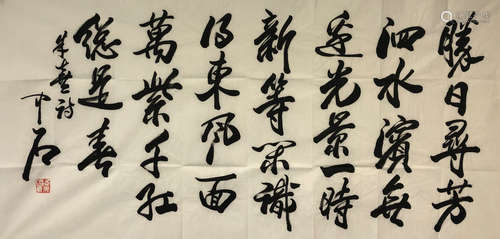 勝日尋芳
泗水濱無
邊光景一時
新等閑識
得東風面
萬紫千紅
總是春
朱熹詩
中石